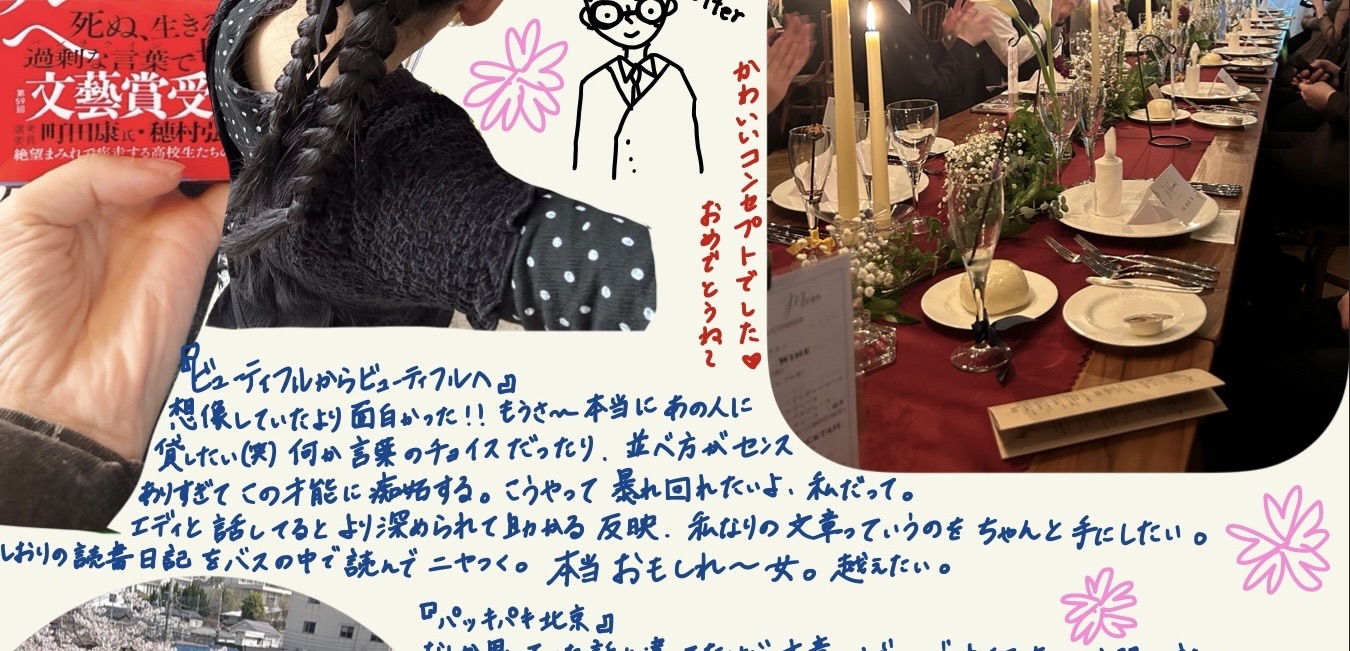 死ぬ、生き
過剰な言葉で
第59回
文藝賞受
選考委員
町田康氏・穂村弘
絶望まみれで疾走する高校生たちの
かわいいコンセプトでした♥
おめでとうね〜
Menu
WINE
『ビューティフルからビューティフルへ』
想像していたより面白かった!! もうさ〜本当にあの人に
貸したい(笑) 何か言葉のチョイスだったり、並べ方がセンス
ありすぎてこの才能に痴妬する。こうやって暴れ回れたいよ、私だって。
エディと話してるとより深められて助かる 反映、私なりの文章っていうのをちゃんと手にしたい。
しおりの読書日記をバスの中で読んでニヤつく。本当おもしれ〜女。越えたい。
『パッキパキ北京』